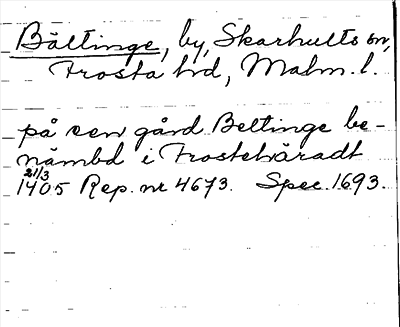 Bältinge, by, Skarhults sn,
Frosta hd, Malm. l.
på een gård Beltinge be-
nämbd i Frosteháradt
21/3
1405 Rep. nr 4673. Spec. 1693.